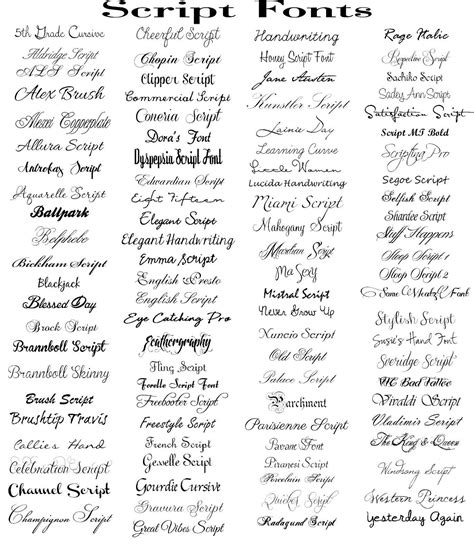 Script Fonts
5th Grade Cursive
Aldridge Script
ALS Script
Alex Brush
Alexei Copperplate
Allura Script
Antrokas Script
Aquarelle Script
Ballpark
Belphebe
Bickham Script
Blackjack
Blessed Day
Brock Script
Brannboll Script
Brannboll Skinny
Brush Script
Brushtip Travis
Callie's Hand
Celebration Script
Channel Script
Champignon Script
Cheerful Script
Chopin Script
Clipper Script
Commercial Script
Coneria Script
Dora's Font
Dyspepsia Script Font
Edwardian Script
Eight Fifteen
Elegant Script
Elegant Handwriting
Emma Script
English Presto
English Script
Eye Catching Pro
Feathergraphy
Fling Script
Foodle Script Font
Freebooter Script
Freestyle Script
French Script
Geselle Script
Gourdie Cursive
Gravura Script
Great Vibes Script
Handwriting
Honey Script
Jane Austen
Kunstler Script
Lainie Day
Learning Curve
Little Women
Lucida Handwriting
Miami Script
Mahogany Script
Maridian Script
Ma Sexy
Mistral Script
Never Grow Up
Nuncio Script
Old Script
Palace Script
Parchment
Parisienne Script
Pavane Font
Piranesi Script
Porcelain Script
Quickie Script
Radagund Script
Rage Italic
Script
Sachiko Script
Sadey Ann Script
Satisfaction Script
Script MT Bold
Scriptina Pro
Segoe Script
Selfish Script
Shardee Script
Stuff Happens
Sleep Script 1
Sleep Script 2
Some Font
Stylish Script
Susie's Hand Font
Sveridge Script
VTC Bad Tattoo
Vivaldi Script
Vladimir Script
The King & Queen
Windsong Script
Western Princess
Yesterday Again